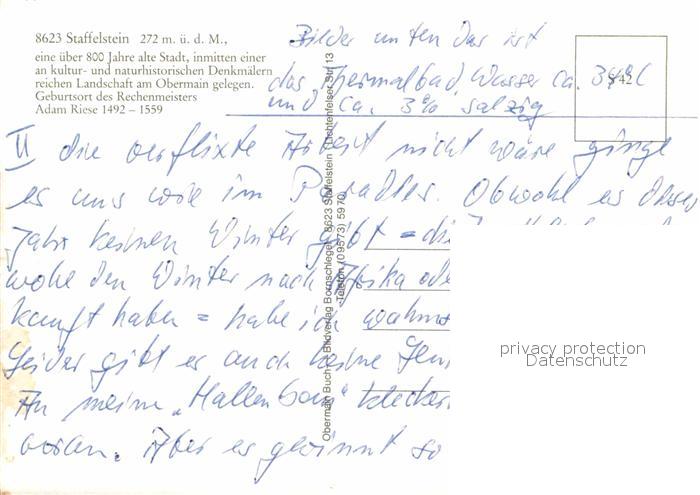 8623 Staffelstein 272 m. ü. d. M.,
eine über 800 Jahre alte Stadt, inmitten einer
an kultur- und naturhistorischen Denkmälern
reichen Landschaft am Obermain gelegen.
Geburtsort des Rechenmeisters
Adam Riese 1492 – 1559
Bilder unten das ist
das Thermalbad, Wasser ca. 34°C
und ca. 3% salzig
S 42
II die verflixte Arbeit nicht wäre ginge
es uns wie im Paradies. Obwohl es dieses
Jahr keinen Winter gibt = die
wohl den Winter nach Afrika oder
kauft haben = habe ich
Leider gibt es auch keine
An meine „Hallenbau"
Aber es gewinnt so
Obermain Buch- u. Bildverlag Bornschlegel, 8623 Staffelstein, Lichtenfelser Str. 13
Telefon (09573) 5970
privacy protection
Datenschutz